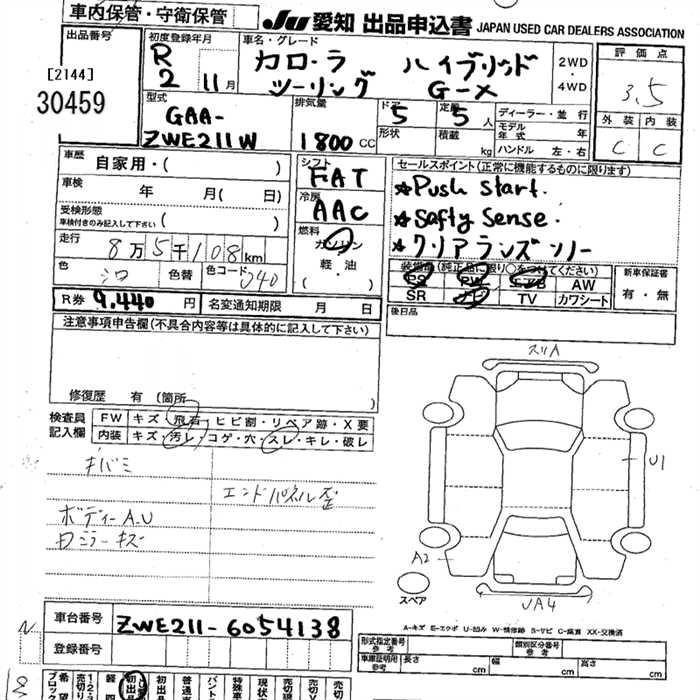 車内保管・守衛保管
JU 愛知 出品申込書 JAPAN USED CAR DEALERS ASSOCIATION
出品番号
[2144]
30459
初度登録年月
R 2 11月
車名・グレード
カローラ ハイブリッド
ツーリング G-X
2WD
・
4WD
評価点
3.5
外装 内装
C C
型式
GAA-
ZWE211W
排気量
1800 CC
ドア
5
形状
定員
5 人
積載
kg
ディーラー・並行
モデル年式 年
ハンドル 左・右
車歴 自家用・( )
車検 年 月( 日)
受検形態
車検付きのみ記入して下さい ( )
走行 8万5千108km
色 シロ 色替 色コード 040
R券 9.440 円 名変通期限 月 日
シフト
FAT
冷房
AAC
燃料
ガソリン
・
軽油
( )
セールスポイント(正常に機能するものに限ります)
★Push Start.
★Safty Sense.
★クリアランスソナー
装備品(純正品に限り○をつけてください)
PS PW エアB AW
SR ナビ TV カワシート
新車保証書
有・無
後日品
注意事項申告欄(不具合内容等は具体的に記入して下さい)
修復歴 有(箇所 )
検査員
記入欄
FW キズ・飛石・ヒビ割・リペア跡・X要
内装 キズ・汚レ・コゲ・穴・スレ・キレ・破レ
キバミ
エンドパネル歪
ボディーA.U
日ミラーキズ
スリA
U1
A2
スペア
UA4
A-キズ E-エクボ U-凹ル W-補修跡 S-サビ C-腐食 XX-交換済
車台番号 ZWE211-6054138
登録番号
形式指定番号 類別区分番号
参考
車庫証明用 長さ cm 幅 cm 高さ cm
参考